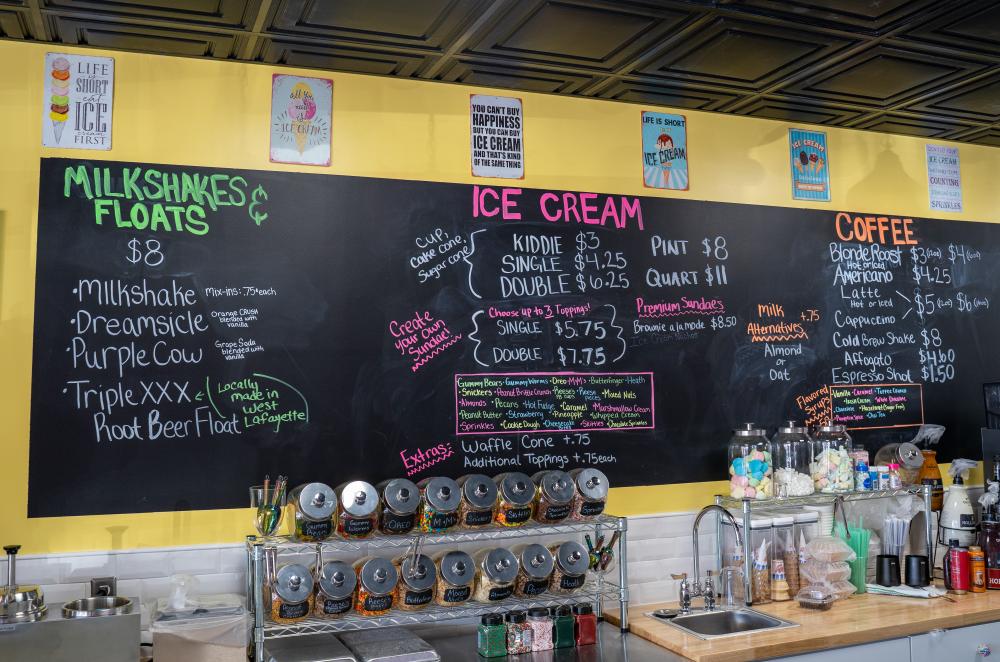 LIFE
is
SHORT
eat
ICE
cream
FIRST
all you
need is
ICE CREAM
YOU CAN'T BUY
HAPPINESS
BUT YOU CAN BUY
ICE CREAM
AND THAT'S KIND
OF THE SAME THING
LIFE IS SHORT
ICE CREAM
ICE CREAM
COUNTING
SPRINKLES
MILKSHAKES &
FLOATS
$8
•Milkshake Mix-ins: .75¢each
•Dreamsicle Orange CRUSH
blended with
vanilla
•Purple Cow Grape Soda
blended with
vanilla
•Triple XXX
Root Beer Float
Locally
made in
West
Lafayette
ICE CREAM
Cup,
cake cone,
sugar cone
KIDDIE $3
SINGLE $4.25
DOUBLE $6.25
PINT $8
QUART $11
Create
your own
Sundae!
Choose up to 3 Toppings!
SINGLE $5.75
DOUBLE $7.75
Premium Sundaes
Brownie a la mode $8.50
Gummy Bears • Gummy Worms • Oreo • M&M's • Butterfinger • Heath
• Snickers • Peanut Brittle Crunch • Reese pieces • Mixed Nuts
• Almonds • Pecans • Hot Fudge • Caramel • Marshmallow Cream
• Peanut Butter • Strawberry • Pineapple • Whipped Cream
• Sprinkles • Cookie Dough • Cheesecake • Skittles • Chocolate Sprinkles
Extras:
Waffle Cone +.75
Additional Toppings +.75 each
Milk +.75
Alternatives
Almond
or
Oat
COFFEE
Blonde Roast
Hot or Iced
Americano $4.25
Latte
Hot or Iced
Cappuccino
Cold Brew Shake $8
Affogato
Espresso Shot $1.50
Flavored
Syrup
Vanilla • Caramel • Toffee Crunch
OREO
M&M
Skittles
Reese's